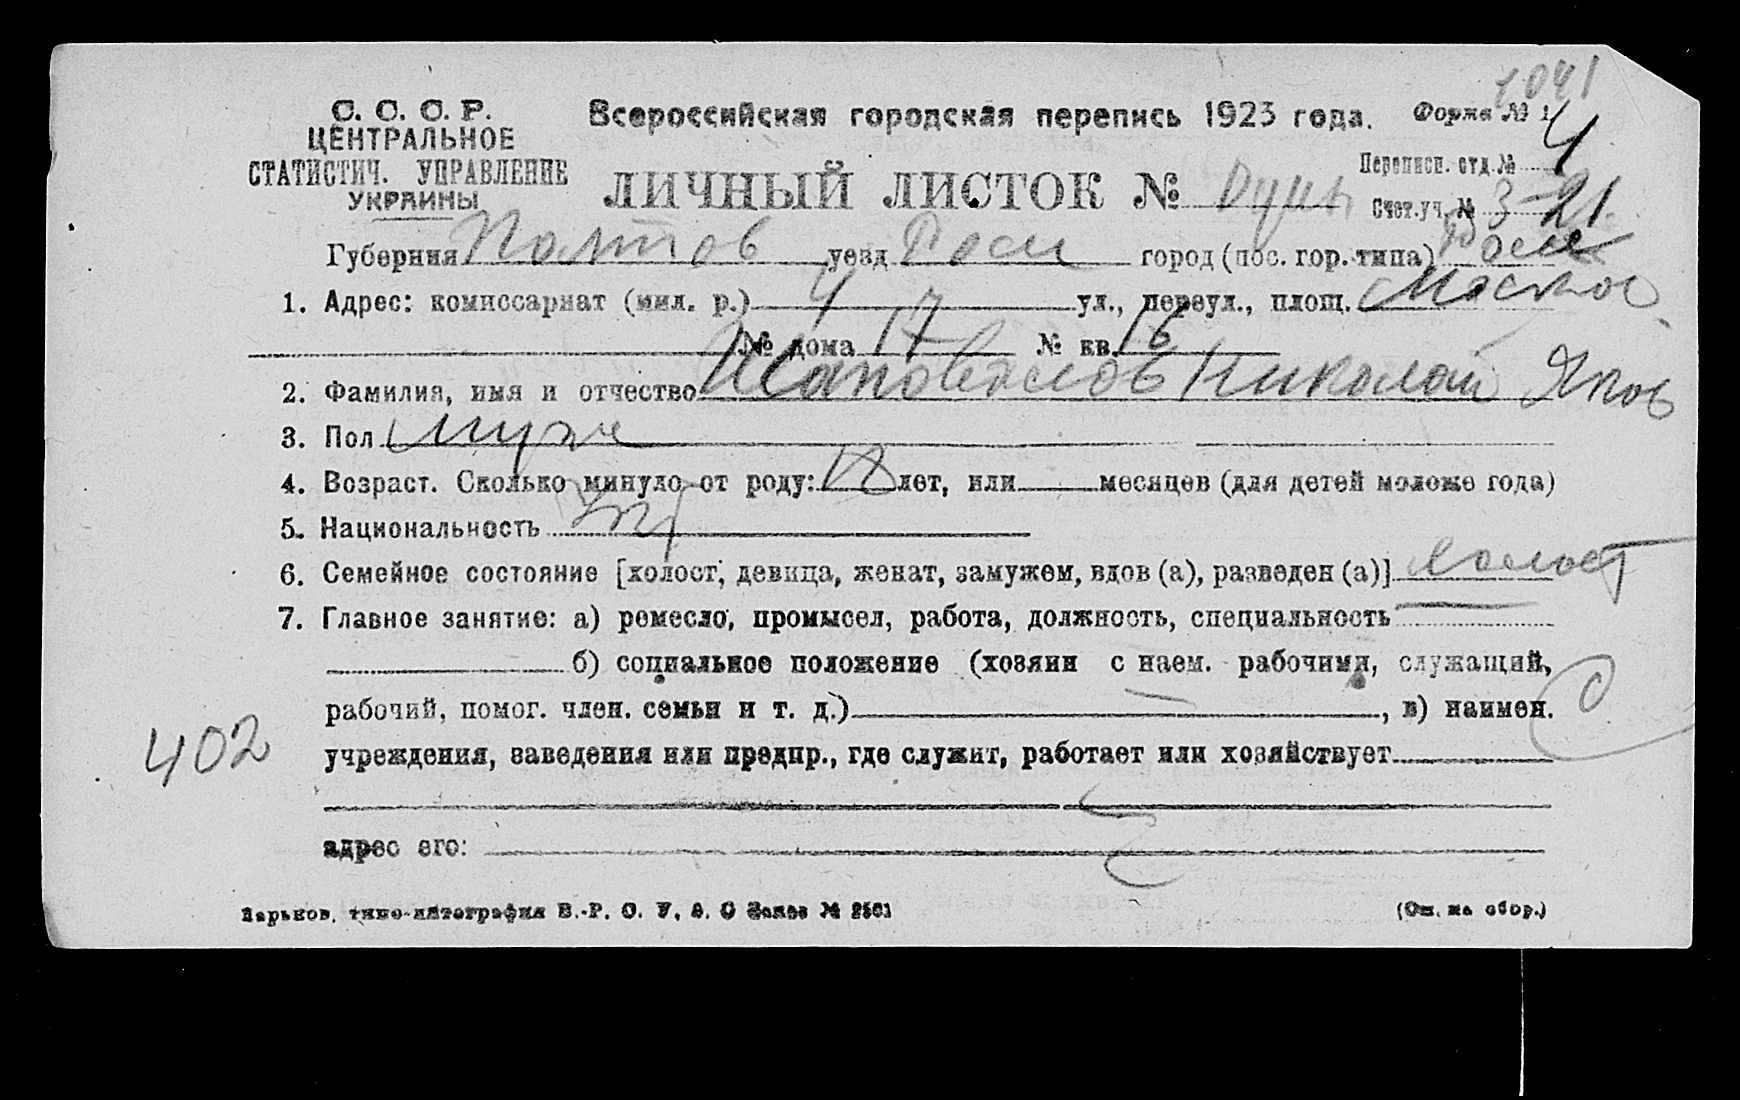 1041
С. С. С. Р.
ЦЕНТРАЛЬНОЕ
СТАТИСТИЧ. УПРАВЛЕНИЕ
УКРАИНЫ
Всероссийская городская перепись 1923 года.
Форма № 1
Переписн. отд. № 4
ЛИЧНЫЙ ЛИСТОК №
Счет. уч. № 3-21
Губерния Полтов уезд Ром город (пос. гор. типа) Ром
1. Адрес: комиссариат (мил. р.) 4 ул., переул., площ. Москов
№ дома 17 № кв. 16
2. Фамилия, имя и отчество Шаповалов Николай Яков
3. Пол муж
4. Возраст. Сколько минуло от роду: 18 лет, или месяцев (для детей моложе года)
5. Национальность Укр
6. Семейное состояние [холост, девица, женат, замужем, вдов (а), разведен (а)] холост
7. Главное занятие: а) ремесло, промысел, работа, должность, специальность —
б) социальное положение (хозяин с наем. рабочими, служащий,
рабочий, помог. член. семьи и т. д.) , в) наимен.
402
учреждения, заведения или предпр., где служит, работает или хозяйствует
адрес его:
Харьков, типо-литография В.-Р. О. У. В. О Заказ № 2501
(См. на обор.)